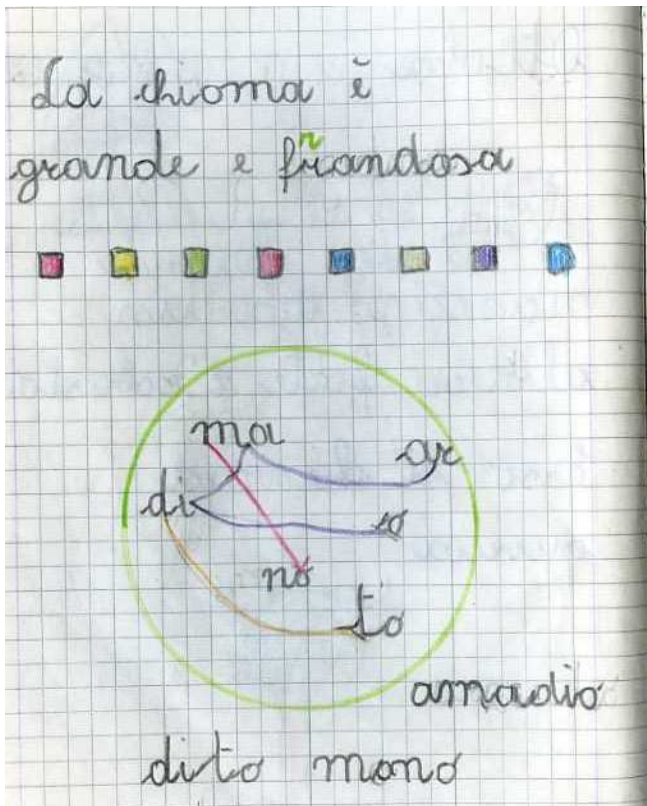 La chioma è
grande e frandosa
ma
a
di
o
no
to
amadio
dito mano